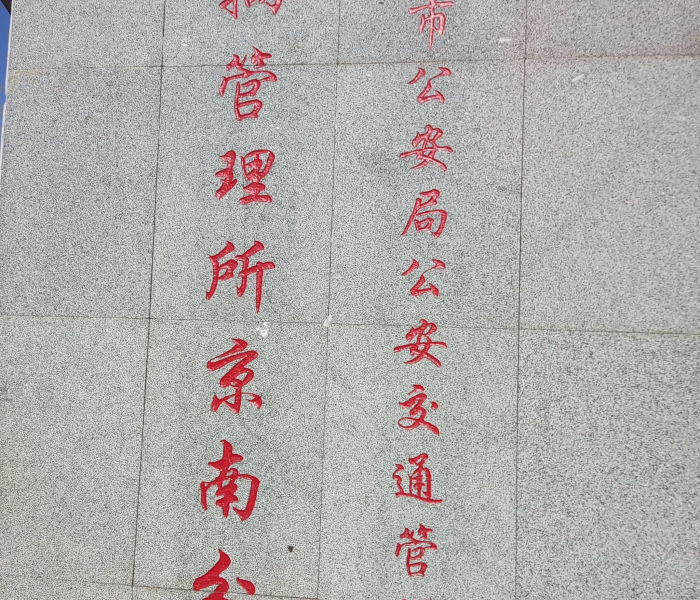 市公安局公安交通管
辆管理所京南分